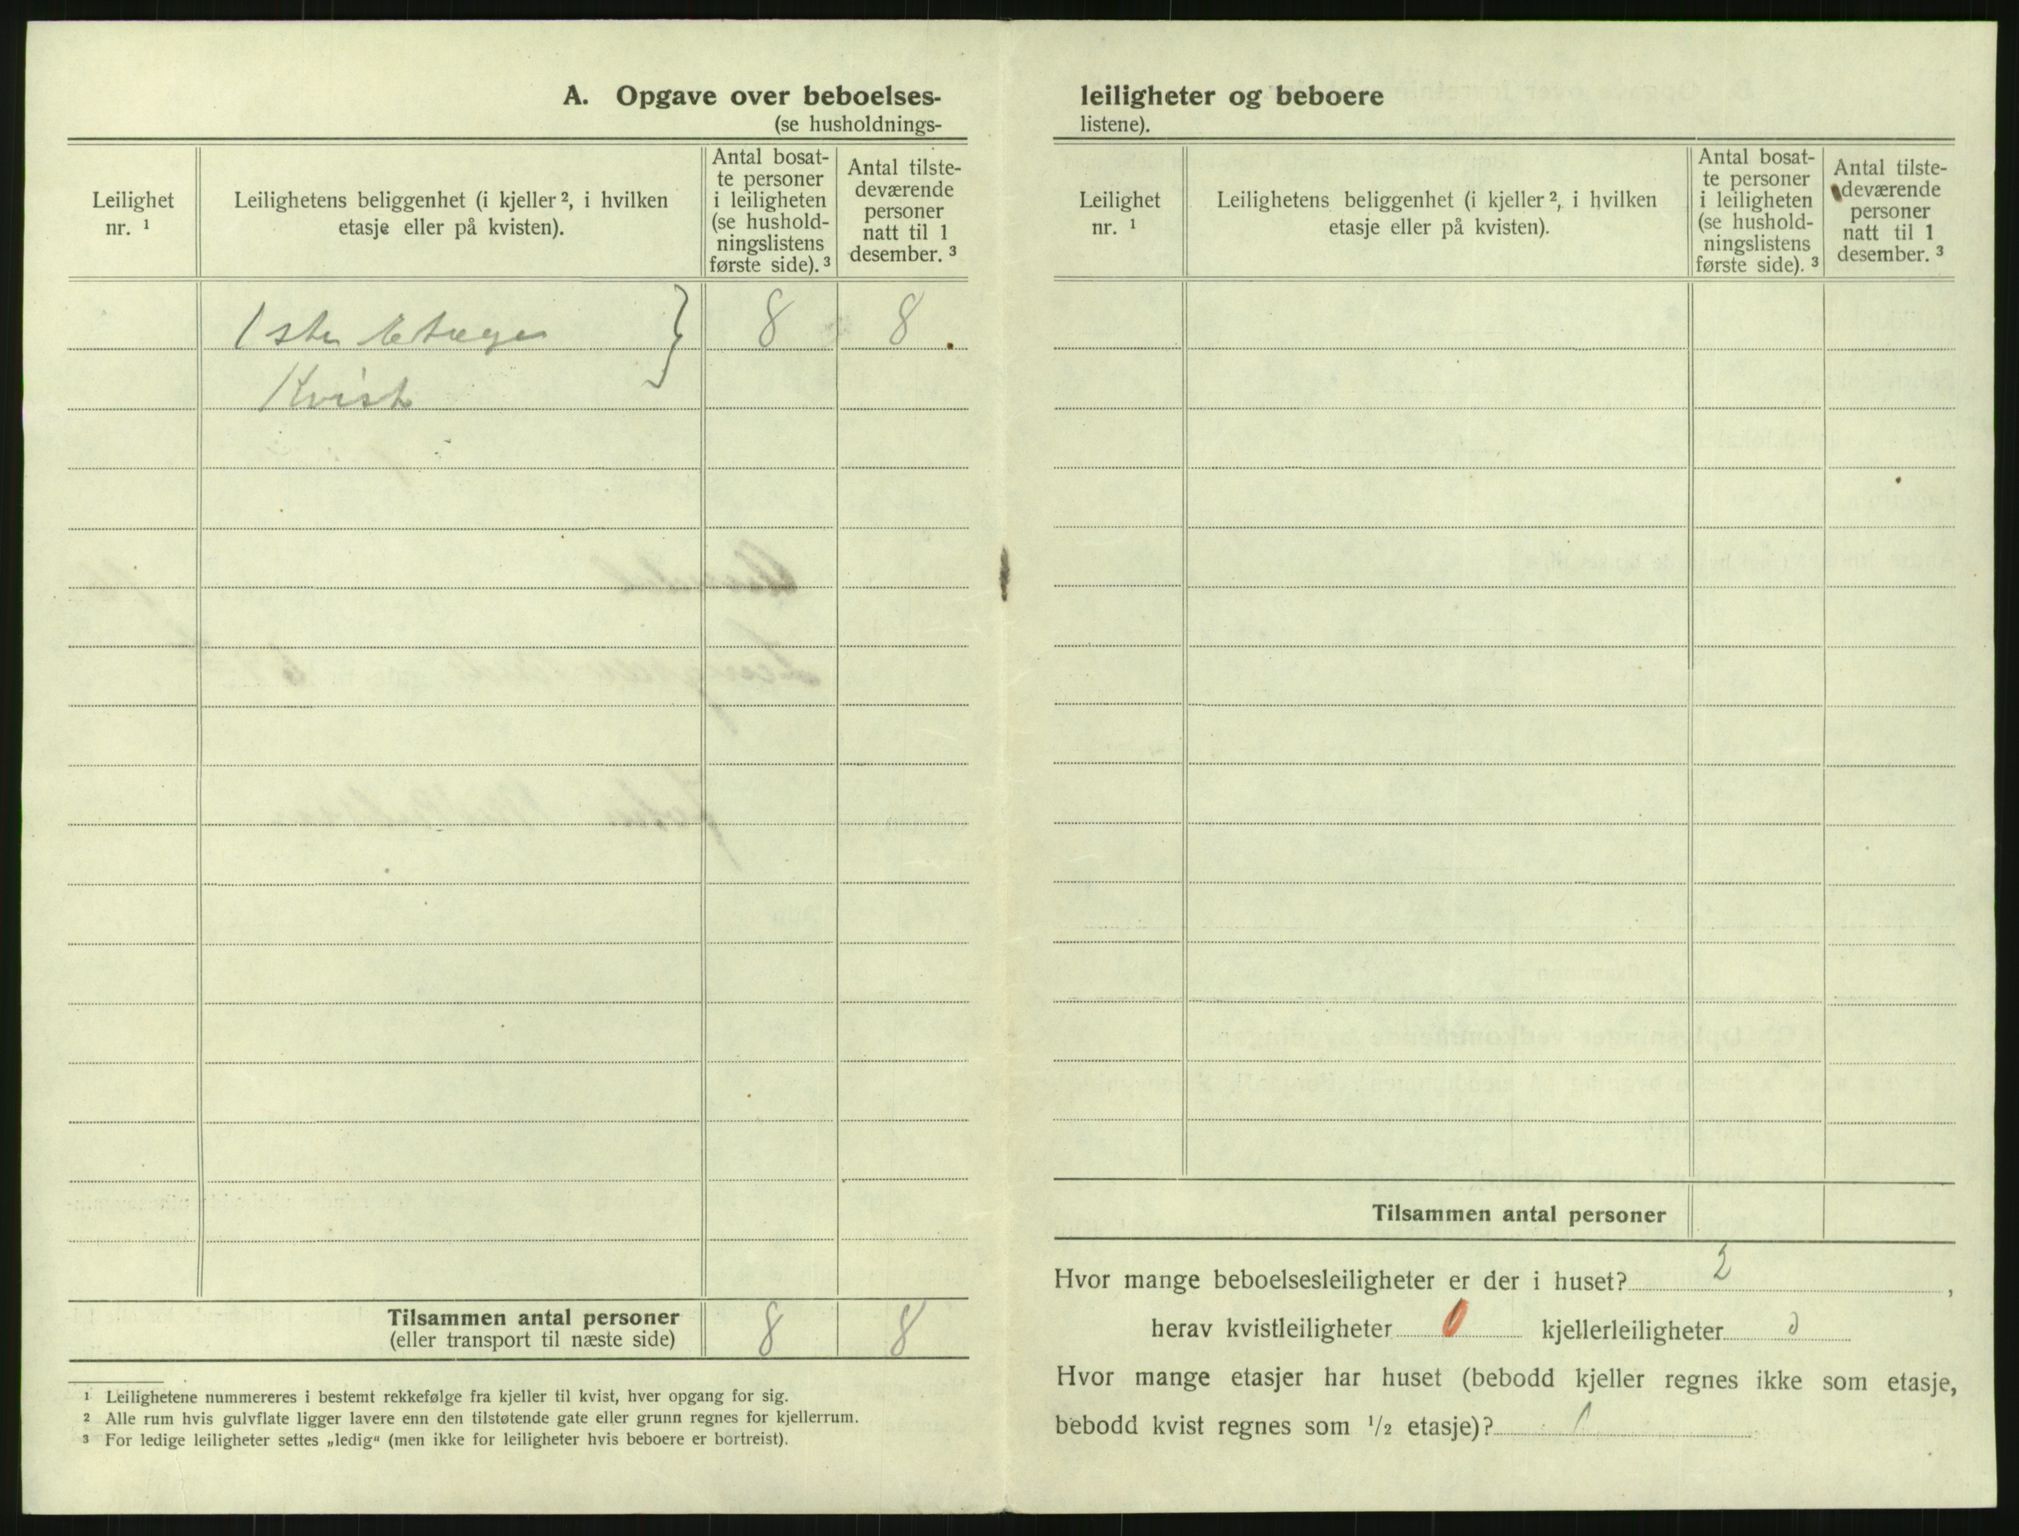 A. Opgave over beboelses-
(se husholdnings-
Leilighet nr. ¹
Leilighetens beliggenhet (i kjeller ², i hvilken etasje eller på kvisten).
Antal bosat-
te personer
i leiligheten
(se hushold-
ningslistens
første side). ³
Antal tilste-
deværende
personer
natt til 1
desember. ³
1ste Etage } 8 8
Kvist
Tilsammen antal personer 8 8
(eller transport til næste side)
¹ Leilighetene nummereres i bestemt rekkefølge fra kjeller til kvist, hver opgang for sig.
² Alle rum hvis gulvflate ligger lavere enn den tilstøtende gate eller grunn regnes for kjellerrum.
³ For ledige leiligheter settes „ledig“ (men ikke for leiligheter hvis beboere er bortreist).
leiligheter og beboere
listene).
Leilighet nr. ¹
Leilighetens beliggenhet (i kjeller ², i hvilken etasje eller på kvisten).
Antal bosat-
te personer
i leiligheten
(se hushold-
ningslistens
første side). ³
Antal tilste-
deværende
personer
natt til 1
desember. ³
Tilsammen antal personer
Hvor mange beboelsesleiligheter er der i huset? 2,
herav kvistleiligheter 0 kjellerleiligheter 0
Hvor mange etasjer har huset (bebodd kjeller regnes ikke som etasje,
bebodd kvist regnes som ½ etasje)? 1